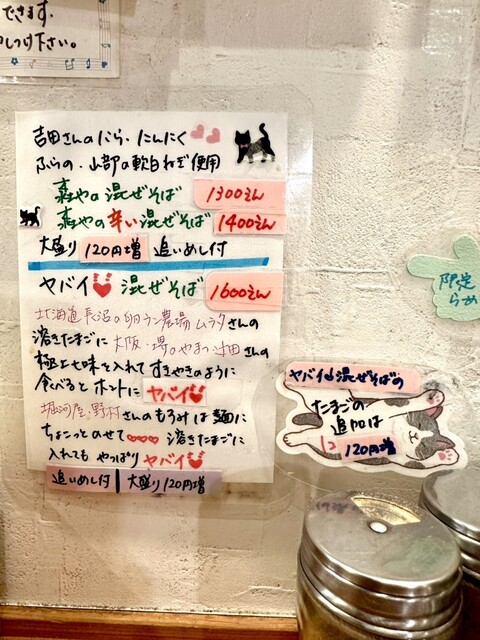 できます.
しつけ下さい。
吉田さんのにら・にんにく
ふらの・山部の軟白ねぎ使用
森やの混ぜそば 1300えん
森やの辛い混ぜそば 1400えん
大盛り 120円増 追いめし付
ヤバイ 混ぜそば 1600えん
北海道長沼の卵ラン農場ムラタさんの
溶きたまごに大阪・堺のやまつ辻田さんの
極上七味を入れてすきやきのように
食べるとホントにヤバイ
堀河屋野村さんのもろみは麺に
ちょこっとのせて 溶きたまごに
入れてもやっぱりヤバイ
追いめし付 大盛り120円増
ヤバイ混ぜそばの
たまごの
追加は
120円増
限定
らぁ